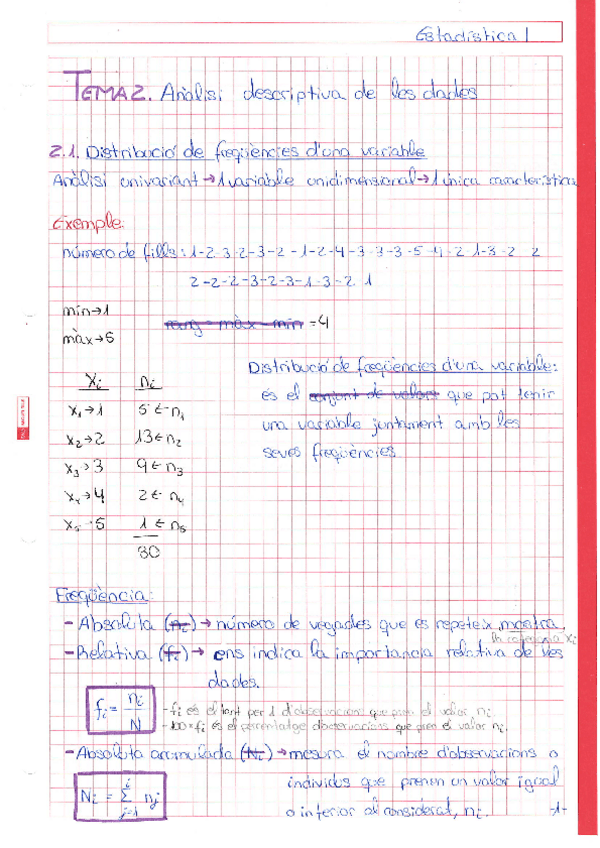 Estadística 1
TEMA 2. Anàlisi descriptiva de les dades
2.1. Distribució de freqüències d'una variable
Anàlisi univariant → 1 variable unidimensional → 1 única característica
Exemple:
número de fills: 1-2-3-2-3-2-1-2-4-3-3-3-5-4-2 1-3-2 2
2-2-2-3-2-3-1-3-2 1
mín → 1
rang = màx - mín = 4
màx → 5
Distribució de freqüències d'una variable:
xi ni
és el conjunt de valors que pot tenir
x1 → 1 5 ← n1
una variable juntament amb les
x2 → 2 13 ← n2
seves freqüències
x3 → 3 9 ← n3
x4 → 4 2 ← n4
x5 → 5 1 ← n5
30
Freqüència:
- Absoluta (ni) → número de vegades que es repeteix, mostra
la categoria xi
- Relativa (fi) → ens indica la importancia relativa de les
dades.
fi = ni / N
- fi és el tant per 1 d'observacions que pren el valor ni
- 100×fi és el percentatge d'observacions que pren el valor ni.
- Absoluta acumulada (Ni) → mesura el nombre d'observacions o
individus que prenen un valor igual
Ni = Σ i j=1 nj
o inferior al considerat, ni.
-1-